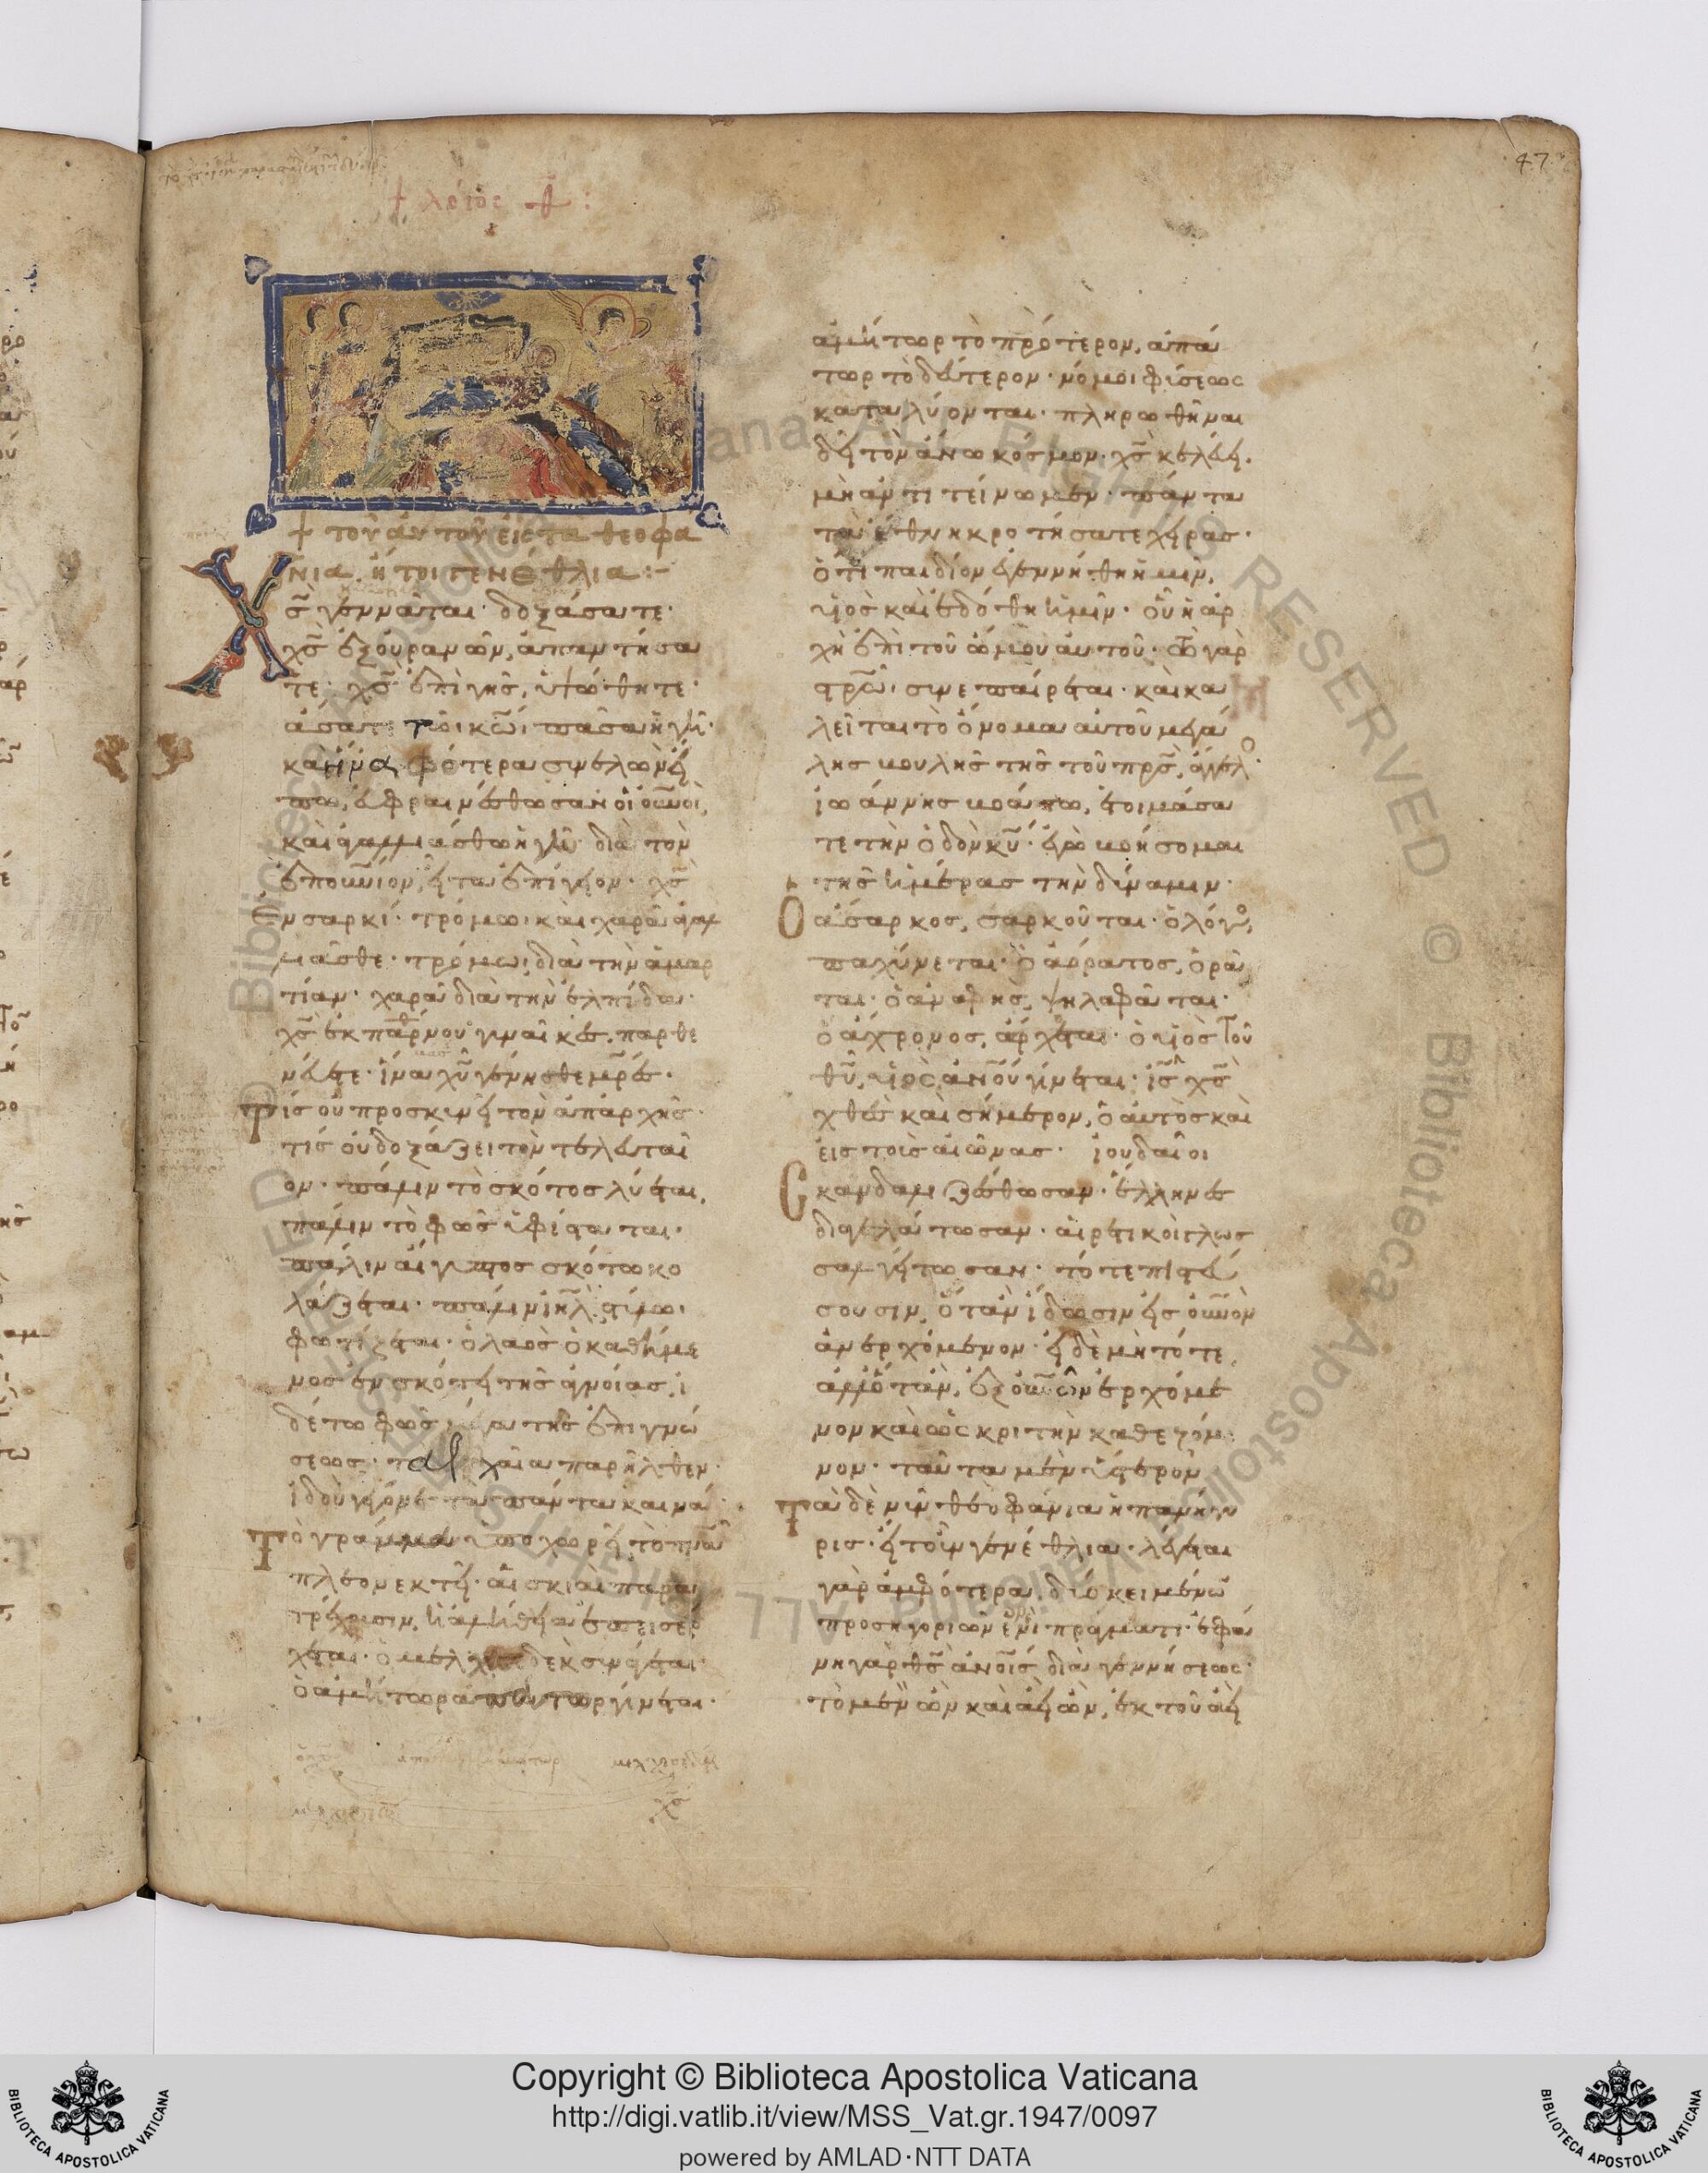 47
+ λόγος δ :
+ τοῦ αὐτοῦ εἰς τὰ θεοφά
νια ἤτοι γενέθλια :-
Χς̄ γεννᾶται· δοξάσατε·
χς̄ ἐξ οὐρανῶν, ἀπαντήσα
τε· χς̄ ἐπὶ γῆς, ὑψώθητε·
ἄσατε τῶ κω̄ι πᾶσα ἡ γῆ·
καὶ ἵν' ἀμφότερα συνελὼν εἴ
πω, εὐφραινέσθωσαν οἱ οὐνοὶ,
καὶ ἀγαλλιάσθω ἡ γῆ· διὰ τὸν
ἐπουνιον, εἶτα ἐπίγειον· χς̄
ἐν σαρκί· τρόμω καὶ χαρᾶ ἀγαλ
λιᾶσθε· τρόμω, διὰ τὴν ἁμαρ
τίαν· χαρᾶ διὰ τὴν ἐλπίδα·
χς̄ ἐκ παρθένου· γυναῖκες, παρθε
νεύετε· ἵνα χῦ γένησθε μρ̄ες·
Τίς οὐ προσκυνεῖ τὸν ἀπαρχῆς·
τίς οὐ δοξάζει τὸν τελευταῖ
ον· πάλιν τὸ σκότος λύεται,
πάλιν τὸ φῶς ὑφίσταται·
πάλιν αἴγυπτος σκότω κο
λάζεται· πάλιν ἰηλ̄ στύλω
φωτίζεται· ὁ λαὸς ὁ καθήμε
νος ἐν σκότει τῆς ἀγνοίας, ἰ
δέτω φῶς μέγα τῆς ἐπιγνώ
σεως· τὰ ἀρχαῖα παρῆλθεν·
ἰδοὺ γέγονε τὰ πάντα καινά·
Τὸ γράμμα ὑποχωρεῖ, τὸ πνᾱ
πλεονεκτεῖ· αἱ σκιαὶ παρα
τρέχουσιν, ἡ ἀλήθεια ἐπεισέρ
χεται· ὁ μελχισεδὲκ συνάγεται·
ὁ ἀμήτωρ ἀπάτωρ γίνεται·
ἀμήτωρ τὸ πρότερον, ἀπά
τωρ τὸ δεύτερον· νόμοι φύσεως
καταλύονται· πληρωθῆναι
δεῖ τὸν ἄνω κόσμον· χς̄ κελεύει,
μὴ ἀντιτείνωμεν· πάντα
τὰ ἔθνη κροτήσατε χεῖρας·
ὅτι παιδίον ἐγεννήθη ἡμῖν,
υἱὸς καὶ ἐδόθη ἡμῖν· οὗ ἡ ἀρ
χὴ ἐπὶ τοῦ ὤμου αὐτοῦ· τῶ γὰρ
στρω̄ συνεπαίρεται· καὶ κα
λεῖται τὸ ὄνομα αὐτοῦ μεγά
λης βουλῆς τῆς τοῦ πρς̄, ἄγγελο·
ἰωάννης βοάτω, ἑτοιμάσα
τε τὴν ὁδὸν κῦ· ἐγὼ βοήσομαι
τῆς ἡμέρας τὴν δύναμιν·
Ὁ ἄσαρκος, σαρκοῦται· ὁ λόγος,
παχύνεται· ὁ ἀόρατος, ὁρᾶ
ται· ὁ ἀναφὴς, ψηλαφᾶται·
ὁ ἄχρονος, ἄρχεται· ὁ υἱὸς τοῦ
θῦ, υἱὸς ἀνοῦ γίνεται· ις̄ χς̄
χθὲς καὶ σήμερον, ὁ αὐτὸς καὶ
εἰς τοὺς αἰῶνας· ἰουδαῖοι
Σκανδαλιζέσθωσαν· ἕλληνες
διαγελάτωσαν· αἱρετικοὶ γλωσ
σαλγείτωσαν· τότε πιστεύ
σουσιν, ὅταν ἴδωσιν εἰς οὐνὸν
ἀνερχόμενον· εἰ δὲ μὴ τότε,
ἀλλ' ὅταν, ἐξ οὐνῶν ἐρχόμε
νον καὶ ὡς κριτὴν καθεζόμε
νον· ταῦτα μὲν ὕστερον
Τὰ δὲ νῦν θεοφάνια ἡ πανήγυ
ρις· εἴτουν γενέθλια· λέγεται
γὰρ ἀμφότερα, δύο κειμένων
προσηγοριῶν ἑνὶ πράγματι· ἐφά
νη γὰρ θς̄ ἀνοις διὰ γεννήσεως·
τὸ μὲν ὢν καὶ ἀεὶ ὢν, ἐκ τοῦ ἀεὶ
Copyright © Biblioteca Apostolica Vaticana
http://digi.vatlib.it/view/MSS_Vat.gr.1947/0097
powered by AMLAD·NTT DATA
BIBLIOTECA APOSTOLICA VATICANA
BIBLIOTECA APOSTOLICA VATICANA